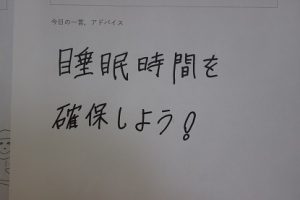 今日の一言、アドバイス
睡眠時間を
確保しよう!